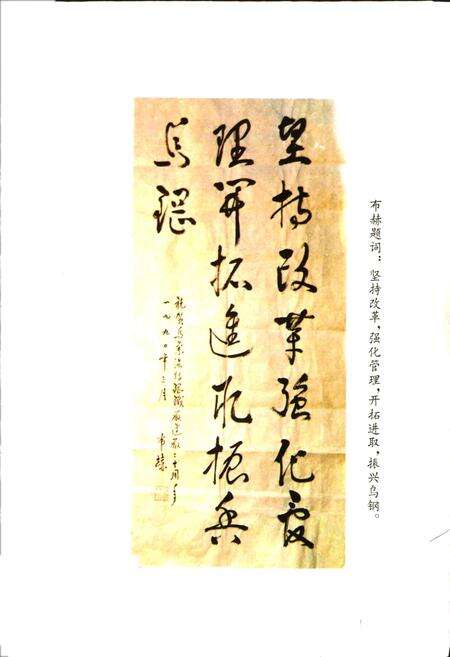 坚持改革強化管
理开拓進取振兴
烏鋼
祝贺乌兰浩特钢铁厂建厂三十周年
一九九〇年三月
布赫
布赫题词：坚持改革，强化管理，开拓进取，振兴乌钢。